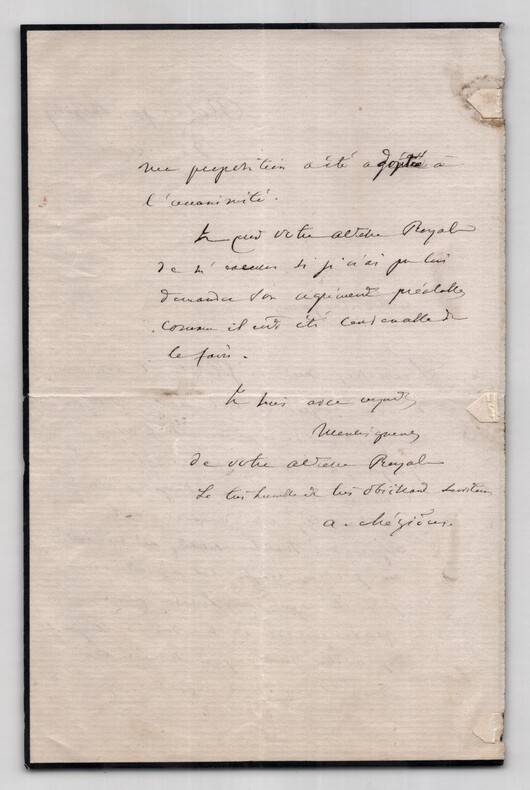 ma proposition a été adoptée à
l'unanimité.
Je prie votre altesse Royale
de m'excuser si je n'ai pu lui
demander son agrément préalable
comme il eut été convenable de
le faire.
Je suis avec respect,
Monseigneur,
de votre altesse Royale
Le très humble et très obéissant serviteur
a.